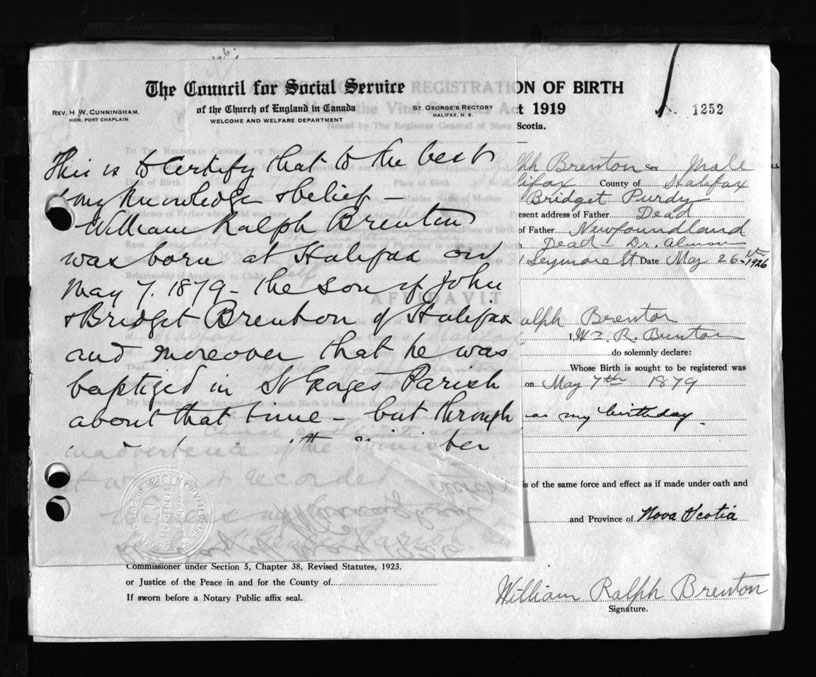 The Council for Social Service
of the Church of England in Canada
WELCOME AND WELFARE DEPARTMENT
REV. H. W. CUNNINGHAM,
HON. PORT CHAPLAIN
ST. GEORGE'S RECTORY
HALIFAX, N. S.
This is to certify that to the best
my knowledge & belief –
William Ralph Brenton
was born at Halifax on
May 7. 1879 – the son of John
& Bridget Brenton of Halifax
and moreover that he was
baptized in St Georges Parish
about that time – but through
inadvertence of the
recorded
ON OF BIRTH
t 1919
1252
Scotia.
ph Brenton sex Male
lifax County of Halifax
Bridget Purdy
esent address of Father Dead
of Father Newfoundland
Dead Dr. Almon
Seymore St Date May 26th 1926
AFFIDAVIT
alph Brenton
I, Wm. R. Brenton
do solemnly declare:
Whose Birth is sought to be registered was
on May 7th 1879
as my birthday.
is of the same force and effect as if made under oath and
and Province of Nova Scotia
Commissioner under Section 5, Chapter 38, Revised Statutes, 1923.
or Justice of the Peace in and for the County of
If sworn before a Notary Public affix seal.
William Ralph Brenton
Signature.